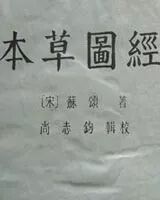 本草圖經
〔宋〕蘇頌 著
尚志鈞 輯校